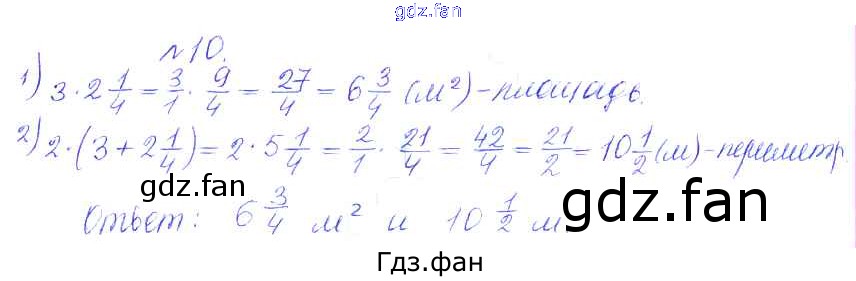 gdz.fan
№10.
1) 3 · 2 1/4 = 3/1 · 9/4 = 27/4 = 6 3/4 (м²) - площадь.
2) 2 · (3 + 2 1/4) = 2 · 5 1/4 = 2/1 · 21/4 = 42/4 = 21/2 = 10 1/2 (м) - периметр.
gdz.fan
gdz.fan
Ответ: 6 3/4 м² и 10 1/2 м.
Гдз.фан